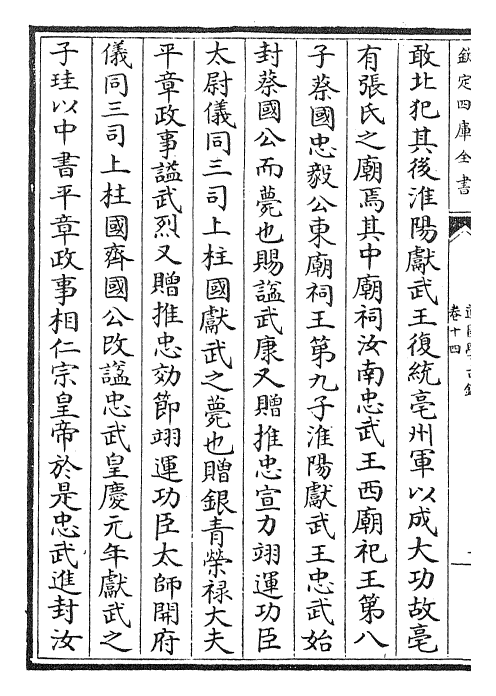 欽定四庫全書
卷十四
敢北犯其後淮陽獻武王復統亳州軍以成大功故亳
有張氏之廟焉其中廟祠汝南忠武王西廟祀王第八
子蔡國忠毅公東廟祠王第九子淮陽獻武王忠武始
封蔡國公而薨也賜謚武康又贈推忠宣力翊運功臣
太尉儀同三司上柱國獻武之薨也贈銀青榮禄大夫
平章政事謚武烈又贈推忠効節翊運功臣太師開府
儀同三司上柱國齊國公改謚忠武皇慶元年獻武之
子珪以中書平章政事相仁宗皇帝於是忠武進封汝